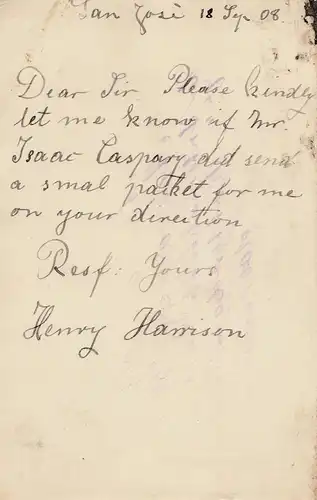 San José 18 Sep 08
Dear Sir Please kindly
let me know if Mr.
Isaac Caspary did send
a smal packet for me
on your direction
Resp: Yours
Henry Harrison